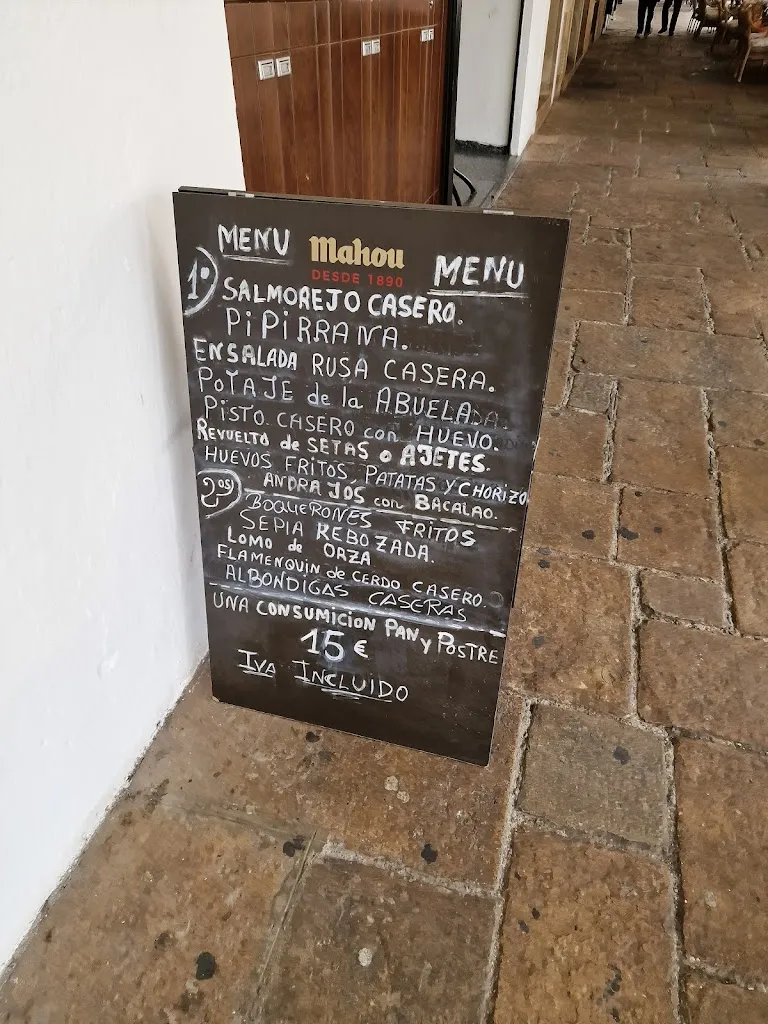 MENU
Mahou
DESDE 1890
MENU
1º
SALMOREJO CASERO.
PiPiRRANA.
ENSALADA RUSA CASERA.
POTAJE de la ABUELA
PISTO CASERO con HUEVO.
REVUELTO de SETAS o AJETES.
HUEVOS FRITOS, PATATAS Y CHORIZO
ANDRAJOS con BACALAO.
2os
BOQUERONES FRITOS
SEPIA REBOZADA.
LOMO de ORZA
FLAMENQUIN de CERDO CASERO.
ALBONDIGAS CASERAS
UNA CONSUMICION PAN y POSTRE
15 €
IVA INCLUIDO